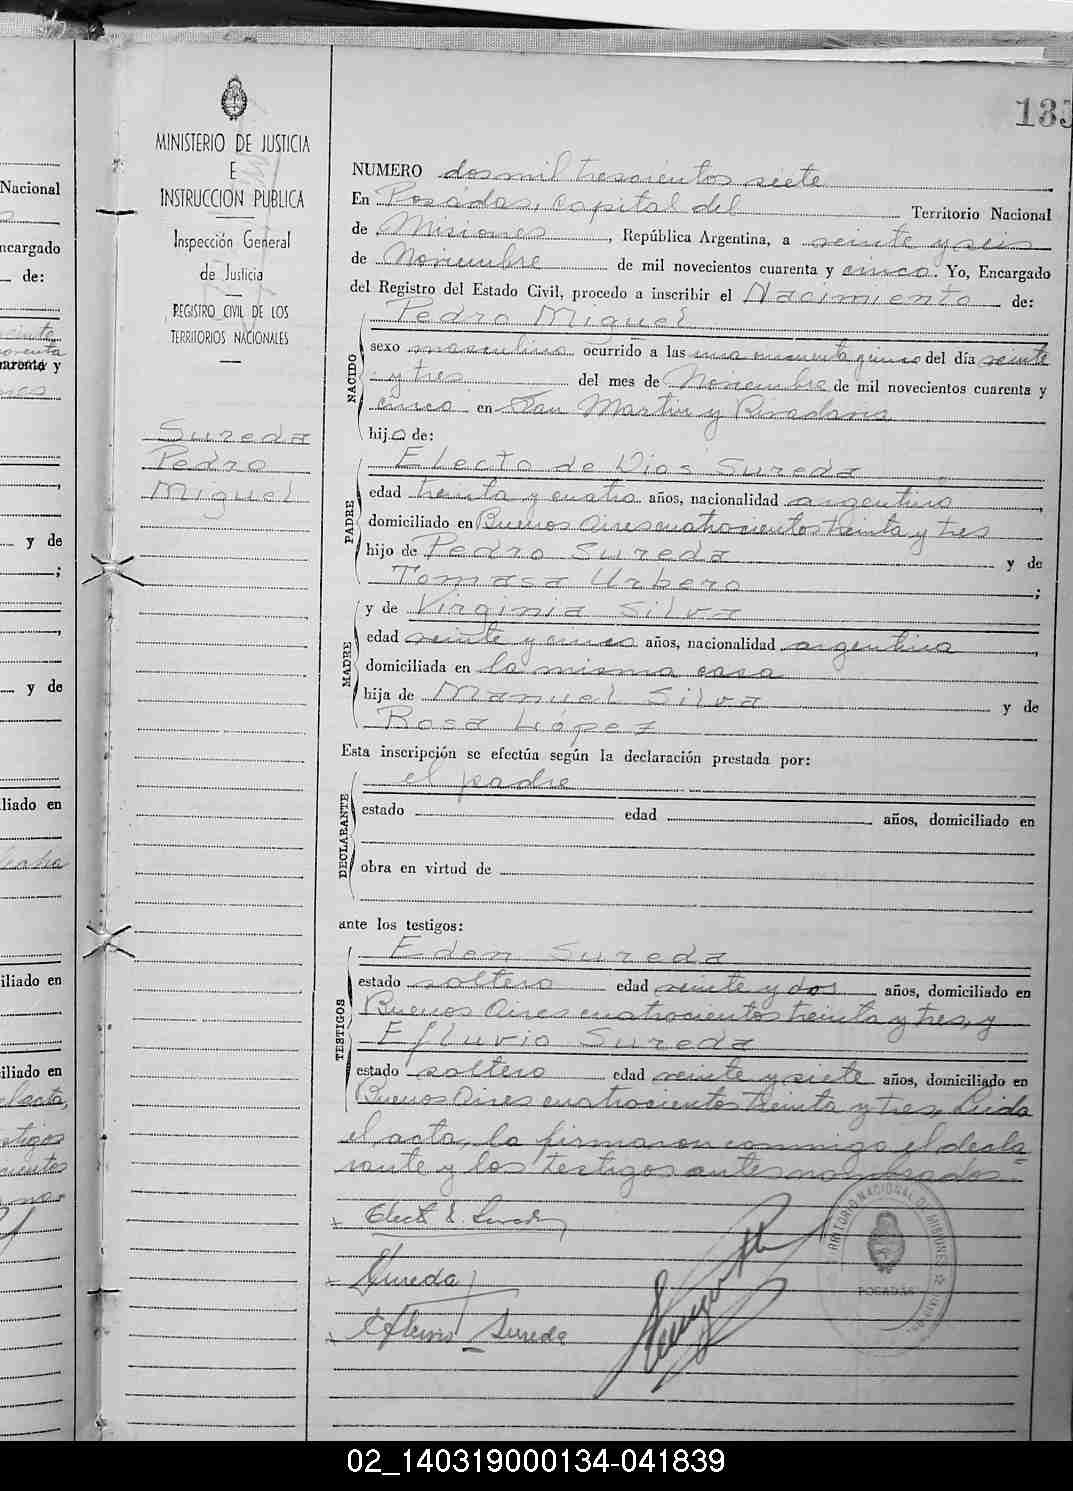 133
MINISTERIO DE JUSTICIA
E
INSTRUCCION PUBLICA
Inspección General
de Justicia
REGISTRO CIVIL DE LOS
TERRITORIOS NACIONALES
Sureda
Pedro
Miguel
NUMERO dos mil trescientos siete
En Posadas, Capital del Territorio Nacional
de Misiones, República Argentina, a veinte y seis
de Noviembre de mil novecientos cuarenta y cinco. Yo, Encargado
del Registro del Estado Civil, procedo a inscribir el Nacimiento de:
Pedro Miguel
NACIDO
sexo masculino ocurrido a las una cincuenta y cinco del día veinte
y tres del mes de Noviembre de mil novecientos cuarenta y
cinco en San Martin y Rivadavia
hijo de:
PADRE
Electo de Dios Sureda
edad treinta y cuatro años, nacionalidad argentina,
domiciliado en Buenos Aires cuatrocientos treinta y tres
hijo de Pedro Sureda y de
Tomasa Urbero;
MADRE
y de Virginia Silva
edad veinte y cinco años, nacionalidad argentina,
domiciliada en la misma casa
hija de Manuel Silva y de
Rosa López
Esta inscripción se efectúa según la declaración prestada por:
DECLARANTE
el padre
estado edad años, domiciliado en
obra en virtud de
ante los testigos:
TESTIGOS
Eden Sureda
estado soltero edad veinte y dos años, domiciliado en
Buenos Aires cuatrocientos treinta y tres, y
Efluvio Sureda
estado soltero edad veinte y siete años, domiciliado en
Buenos Aires cuatrocientos treinta y tres. Leida
el acta, la firmaron conmigo el decla=
rante y los testigos antes nombrados.
Sureda
Efluvio Sureda
POSADAS
Nacional
ncargado
de:
y de
;
y de
liado en
iliado en
iliado en
02_140319000134-041839